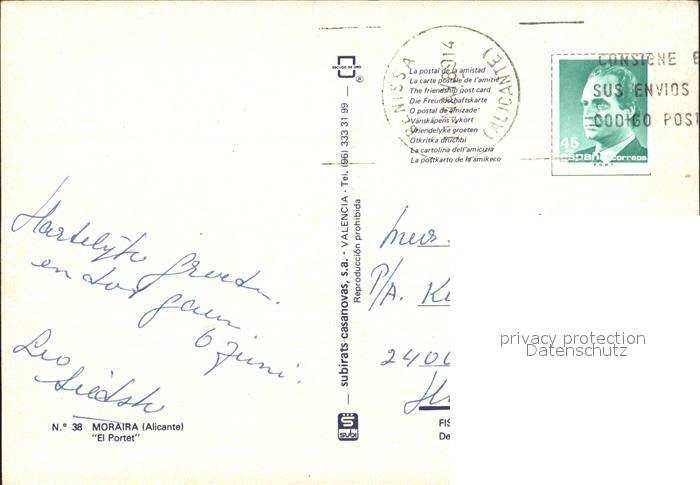 Hartelijke groeten
en
6 Juni.
Leo
N.° 38 MORAIRA (Alicante)
"El Portet"
subirats casanovas, s.a. - VALENCIA - Tel. (96) 333 31 99 —
Reproducción prohibida
subi
ESCUDO DE ORO
®
La postal de la amistad
La carte postale de l'amitié
The friendship post card
Die Freundschaftskarte
O postal de amizade
Vänskapens vykort
Vriendelyke groeten
Otkritka druchbi
La cartolina dell'amicizia
La postkarto de la amikeco
BENISSA
(ALICANTE)
CONSIGNE E
SUS ENVIOS
CODIGO POST
45
españa correos
Mevr.
P/A. K
2400
FIS
De
privacy protection
Datenschutz